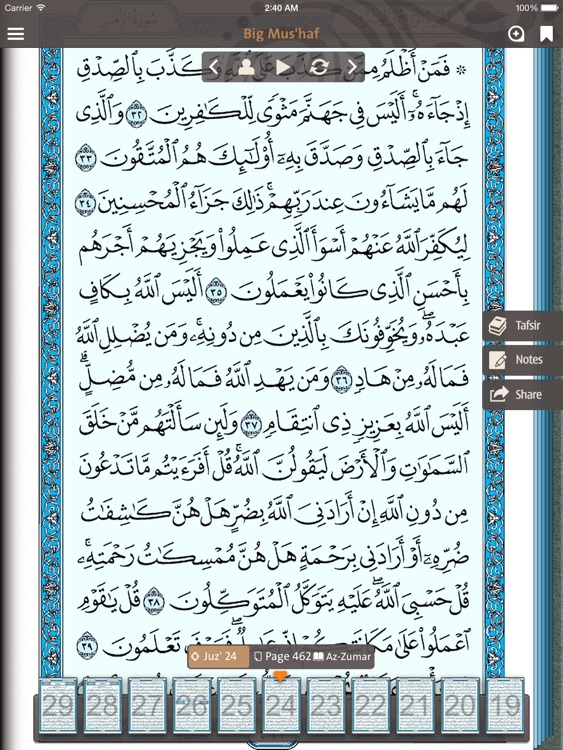 Carrier 2:40 AM 100%
Big Mus'haf
۞ فَمَنْ أَظْلَمُ مِمَّن كَذَبَ عَلَى ٱللَّهِ وَكَذَّبَ بِٱلصِّدْقِ
إِذْ جَآءَهُۥٓ ۚ أَلَيْسَ فِى جَهَنَّمَ مَثْوًى لِّلْكَـٰفِرِينَ ٣٢ وَٱلَّذِى
جَآءَ بِٱلصِّدْقِ وَصَدَّقَ بِهِۦٓ ۙ أُو۟لَـٰٓئِكَ هُمُ ٱلْمُتَّقُونَ ٣٣
لَهُم مَّا يَشَآءُونَ عِندَ رَبِّهِمْ ۚ ذَٰلِكَ جَزَآءُ ٱلْمُحْسِنِينَ ٣٤
لِيُكَفِّرَ ٱللَّهُ عَنْهُمْ أَسْوَأَ ٱلَّذِى عَمِلُوا۟ وَيَجْزِيَهُمْ أَجْرَهُم
بِأَحْسَنِ ٱلَّذِى كَانُوا۟ يَعْمَلُونَ ٣٥ أَلَيْسَ ٱللَّهُ بِكَافٍ
عَبْدَهُۥ ۖ وَيُخَوِّفُونَكَ بِٱلَّذِينَ مِن دُونِهِۦ ۚ وَمَن يُضْلِلِ ٱللَّهُ
فَمَا لَهُۥ مِنْ هَادٍ ٣٦ وَمَن يَهْدِ ٱللَّهُ فَمَا لَهُۥ مِن مُّضِلٍّ ۗ
أَلَيْسَ ٱللَّهُ بِعَزِيزٍ ذِى ٱنتِقَامٍ ٣٧ وَلَئِن سَأَلْتَهُم مَّنْ خَلَقَ
ٱلسَّمَـٰوَٰتِ وَٱلْأَرْضَ لَيَقُولُنَّ ٱللَّهُ ۚ قُلْ أَفَرَءَيْتُم مَّا تَدْعُونَ
مِن دُونِ ٱللَّهِ إِنْ أَرَادَنِىَ ٱللَّهُ بِضُرٍّ هَلْ هُنَّ كَـٰشِفَـٰتُ
ضُرِّهِۦٓ أَوْ أَرَادَنِى بِرَحْمَةٍ هَلْ هُنَّ مُمْسِكَـٰتُ رَحْمَتِهِۦ ۚ
قُلْ حَسْبِىَ ٱللَّهُ ۖ عَلَيْهِ يَتَوَكَّلُ ٱلْمُتَوَكِّلُونَ ٣٨ قُلْ يَـٰقَوْمِ
ٱعْمَلُوا۟ عَلَىٰ تَعْلَمُونَ ٣٩
Tafsir
Notes
Share
Juz' 24 Page 462 Az-Zumar
29 28 27 26 25 24 23 22 21 20 19